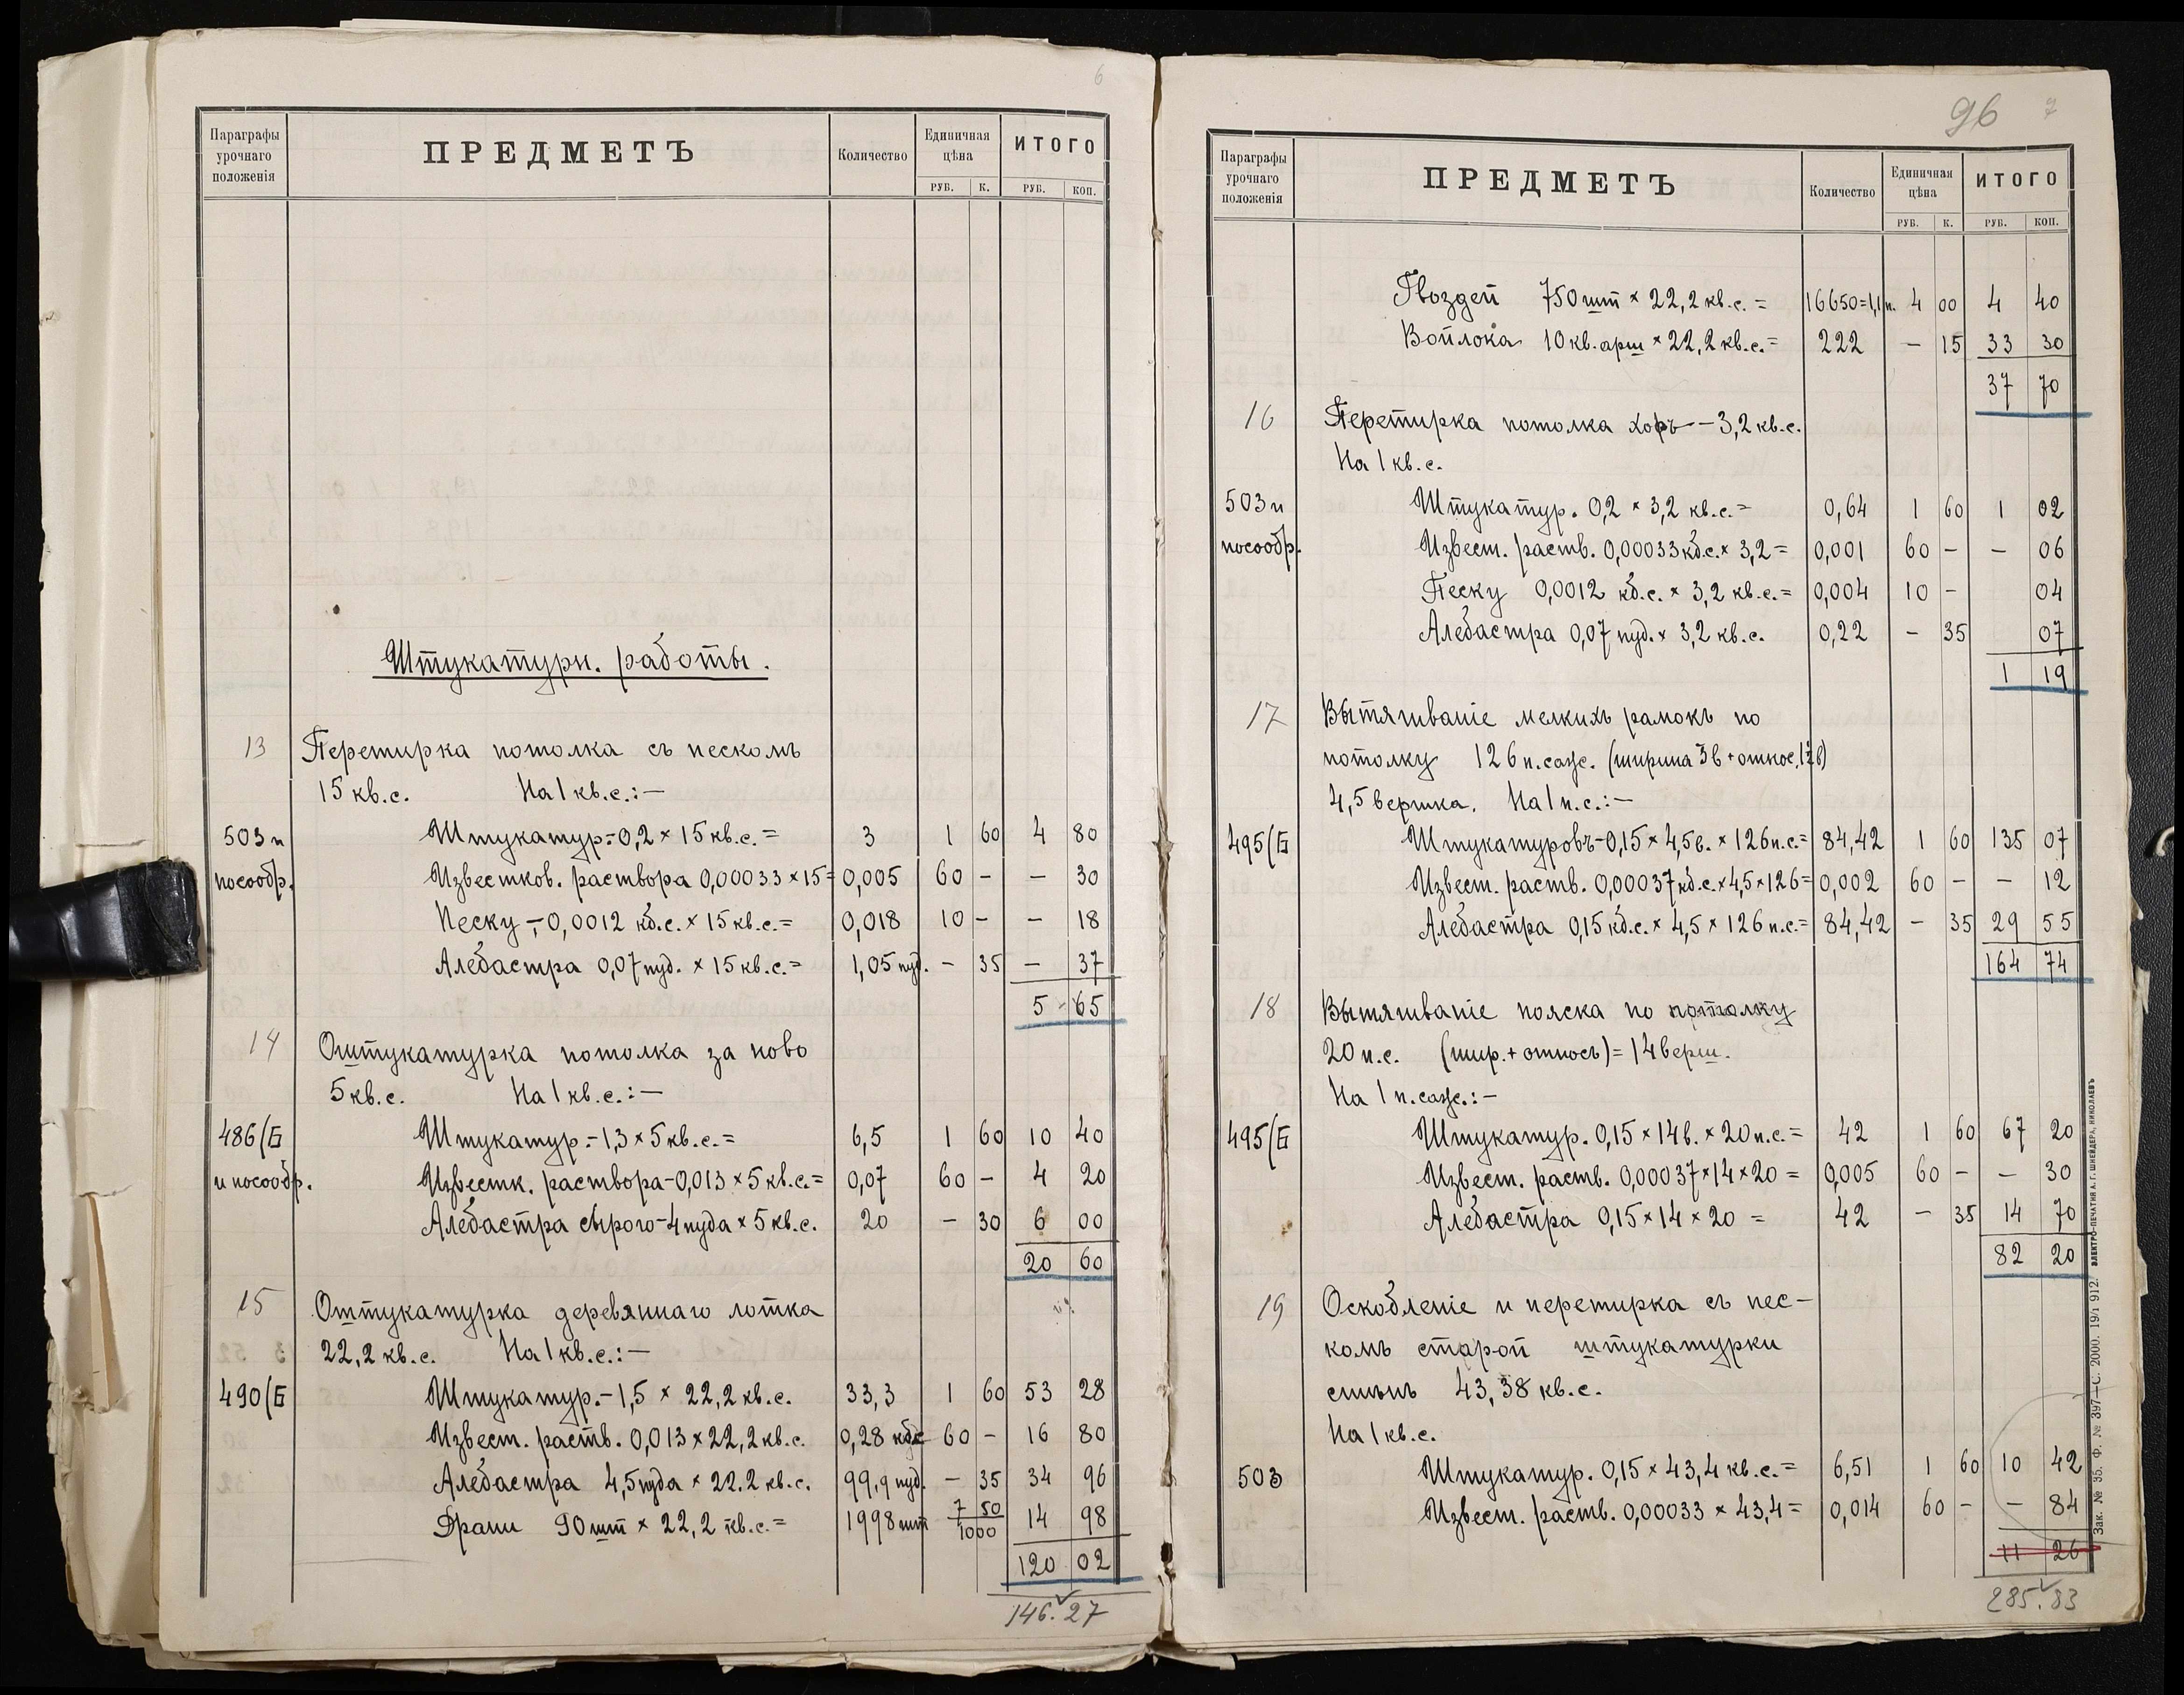 6
Параграфы урочнаго положенія
ПРЕДМЕТЪ
Количество
Единичная цѣна
ИТОГО
РУБ. К. РУБ. КОП.
Штукатурн. работы.
13 Перетирка потолка съ пескомъ
15 кв.с. На 1 кв.с.:—
503 и Штукатур.-0,2 × 15 кв.с.= 3 1 60 4 80
пособр. Известков. раствора 0,00033 × 15= 0,005 60 – – 30
Песку-,0,0012 кб.с. × 15 кв.с.= 0,018 10 – – 18
Алебастра 0,07 пуд. × 15 кв.с.= 1,05 пуд. – 35 – 37
5 65
14 Оштукатурка потолка за ново
5 кв.с. На 1 кв.с.:—
486/Б Штукатур.-1,3 × 5 кв.с.= 6,5 1 60 10 40
и пособр. Известк. раствора-0,013 × 5 кв.с.= 0,07 60 – 4 20
Алебастра сырого-4 пуда × 5 кв.с. 20 – 30 6 00
20 60
15 Оштукатурка деревяннаго лотка
22,2 кв.с. На 1 кв.с.:—
490/Б Штукатур.-1,5 × 22,2 кв.с. 33,3 1 60 53 28
Извест. раств. 0,013 × 22,2 кв.с. 0,28 кбс 60 – 16 80
Алебастра 4,5 пуда × 22.2 кв.с. 99,9 пуд. – 35 34 96
Драни 90 шт × 22,2 кв.с.= 1998 шт 7 50/1000 14 98
120 02
146.27
96 7
Параграфы урочнаго положенія
ПРЕДМЕТЪ
Количество
Единичная цѣна
ИТОГО
РУБ. К. РУБ. КОП.
Гвоздей 750 шт × 22,2 кв.с.= 16650=1,1 п. 4 00 4 40
Войлока 10 кв.арш × 22,2 кв.с.= 222 – 15 33 30
37 70
16 Перетирка потолка хоръ – 3,2 кв.с.
На 1 кв.с.
503 и Штукатур. 0,2 × 3,2 кв.с.= 0,64 1 60 1 02
пособр. Извест. раств. 0,00033 кб.с. × 3,2= 0,001 60 – – 06
Песку 0,0012 кб.с. × 3,2 кв.с.= 0,004 10 – 04
Алебастра 0,07 пуд. × 3,2 кв.с. 0,22 – 35 07
1 19
17 Вытягиваніе мелкихъ рамокъ по
потолку 126 п.саж. (ширина 3 в + относ. 1½ в)
4,5 вершка. На 1 п.с.:—
495/Б Штукатуровъ-0,15 × 4,5 в. × 126 п.с.= 84,42 1 60 135 07
Извест. раств. 0,00037 кб.с. × 4,5 × 126= 0,002 60 – – 12
Алебастра 0,15 кб.с. × 4,5 × 126 п.с.= 84,42 – 35 29 55
164 74
18 Вытягиваніе пояска по потолку
20 п.с. (шир.+относъ)=14 верш.
На 1 п.саж.:—
495/Б Штукатур. 0,15 × 14 в. × 20 п.с.= 42 1 60 67 20
Извест. раств. 0,00037 × 14 × 20 = 0,005 60 – – 30
Алебастра 0,15 × 14 × 20 = 42 – 35 14 70
82 20
19 Оскобленіе и перетирка съ пес-
комъ старой штукатурки
стѣнъ 43,38 кв.с.
На 1 кв.с.
503 Штукатур. 0,15 × 43,4 кв.с.= 6,51 1 60 10 42
Извест. раств. 0,00033 × 43,4= 0,014 60 – – 84
11 26
285.83
Зак. № 35. Ф. № 397—С. 2000. 19/I 912. ЭЛЕКТРО-ПЕЧАТНЯ А. Г. ШНЕЙДЕРА, НИКОЛАЕВЪ